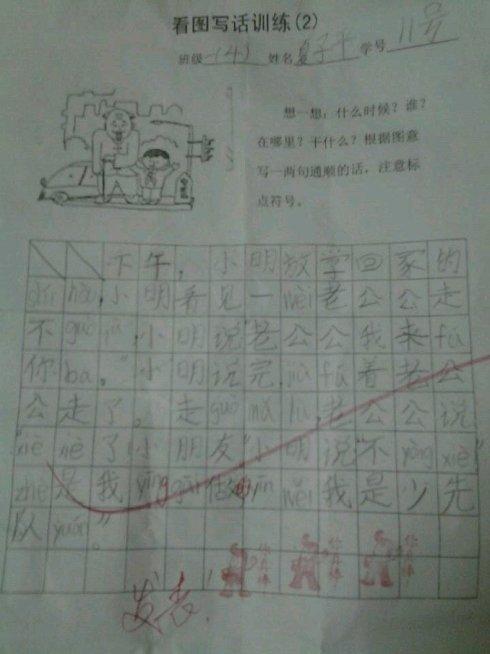 看图写话训练(2)
班级一(4) 姓名 学号11号
想一想：什么时候？谁？
在哪里？干什么？根据图意
写一两句通顺的话，注意标
点符号。
下午，小明放学回家的
shí hòu，小明看见一wèi老公公走
不guò qù，小明说"老公公我来fú
你ba。"小明说完jiù fú着老公
公走了。走guò mǎ lù，老公公说
"xiè xiè了小朋友"小明说"不yòng xiè"
zhè是我yīng gāi做的yīn wèi我是少先
队yuán。"
发表！